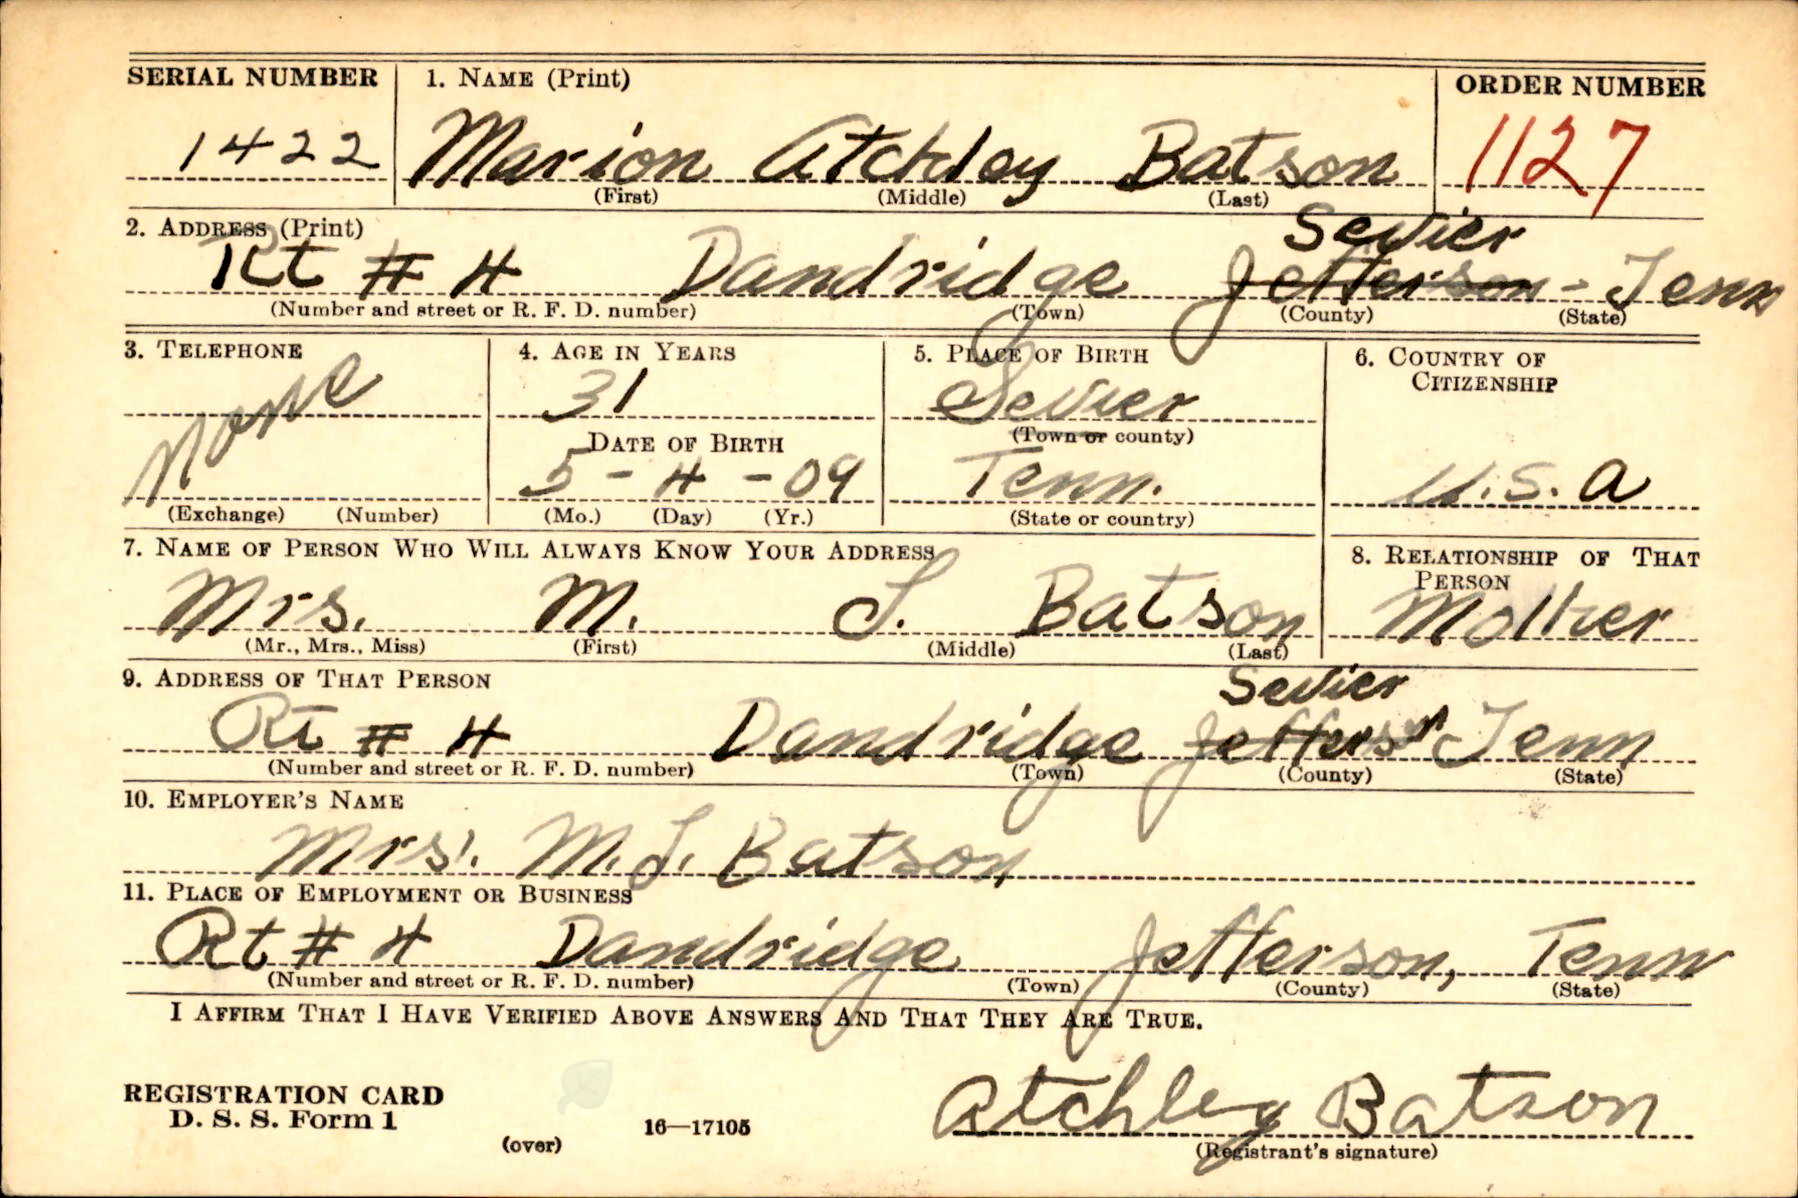 SERIAL NUMBER 1. NAME (Print) ORDER NUMBER
1422 Marion Atchley Batson 1127
(First) (Middle) (Last)
2. ADDRESS (Print) Sevier
Rt # 4 Dandridge Jefferson - Tenn
(Number and street or R. F. D. number) (Town) (County) (State)
3. TELEPHONE 4. AGE IN YEARS 5. PLACE OF BIRTH 6. COUNTRY OF
CITIZENSHIP
None 31 Sevier
DATE OF BIRTH (Town or county)
5 - 4 - 09 Tenn. U.S.A
(Exchange) (Number) (Mo.) (Day) (Yr.) (State or country)
7. NAME OF PERSON WHO WILL ALWAYS KNOW YOUR ADDRESS 8. RELATIONSHIP OF THAT
PERSON
Mrs. M. J. Batson Mother
(Mr., Mrs., Miss) (First) (Middle) (Last)
9. ADDRESS OF THAT PERSON Sevier
Rt # 4 Dandridge Jefferson Tenn
(Number and street or R. F. D. number) (Town) (County) (State)
10. EMPLOYER'S NAME
Mrs. M. J. Batson
11. PLACE OF EMPLOYMENT OR BUSINESS
Rt # 4 Dandridge Jefferson, Tenn
(Number and street or R. F. D. number) (Town) (County) (State)
I AFFIRM THAT I HAVE VERIFIED ABOVE ANSWERS AND THAT THEY ARE TRUE.
REGISTRATION CARD
D. S. S. Form 1 Atchley Batson
(over) 16—17105 (Registrant's signature)